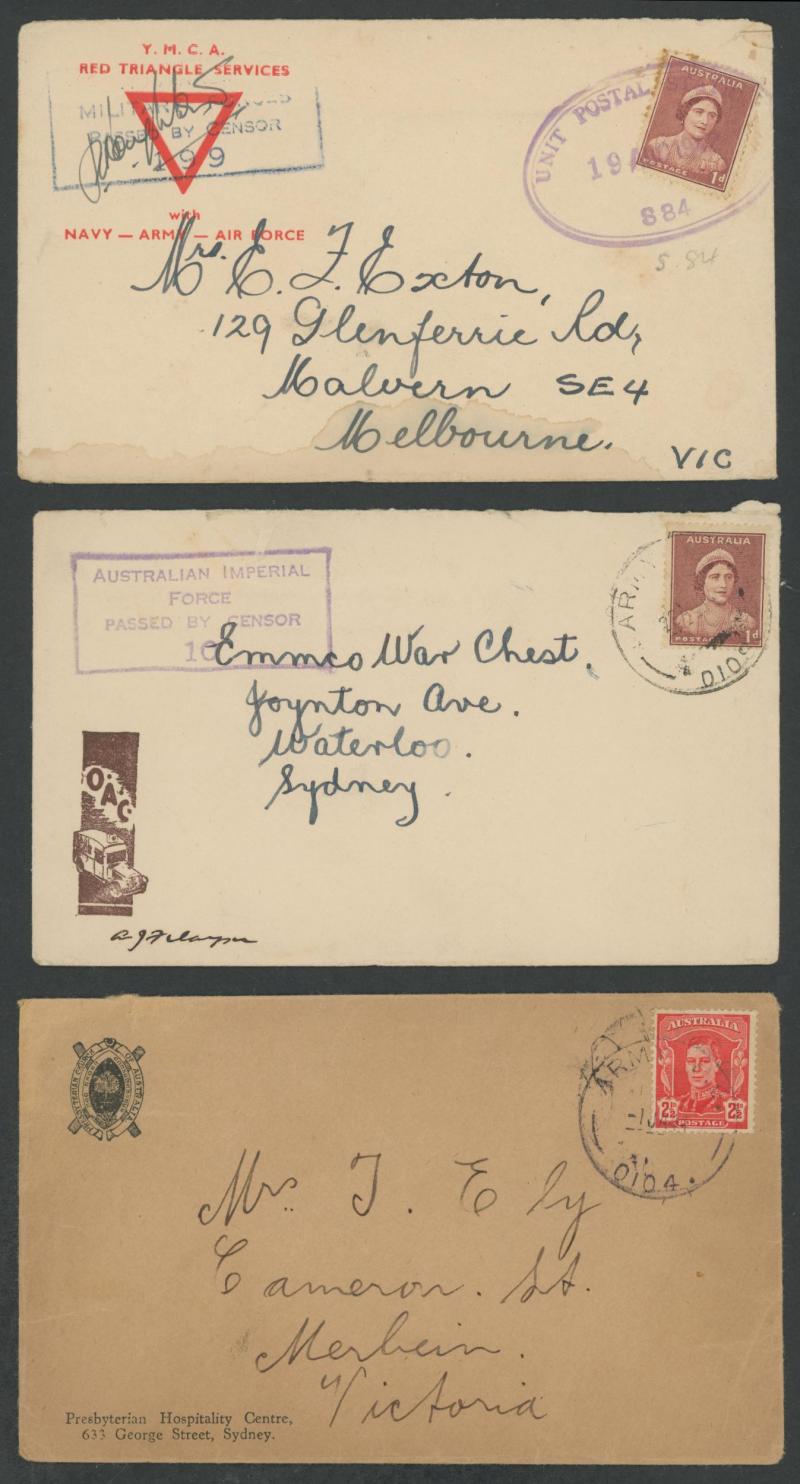 Y. M. C. A.
RED TRIANGLE SERVICES
PASSED BY CENSOR
199
with
NAVY — ARMY — AIR FORCE
UNIT POSTAL
194
S84
AUSTRALIA
POSTAGE 1d
S.84
Mrs. E. F. Exton,
129 Glenferrie Rd,
Malvern SE4
Melbourne.
VIC
AUSTRALIAN IMPERIAL
FORCE
PASSED BY CENSOR
ARMY
0109
AUSTRALIA
POSTAGE 1d
Emmco War Chest.
Joynton Ave.
Waterloo.
Sydney.
OAC
PRESBYTERIAN CHURCH OF AUSTRALIA
ARM
0104
AUSTRALIA
2½D 2½D
POSTAGE
Mrs. J. Ely
Cameron. St.
Merbein.
Victoria
Presbyterian Hospitality Centre,
633 George Street, Sydney.